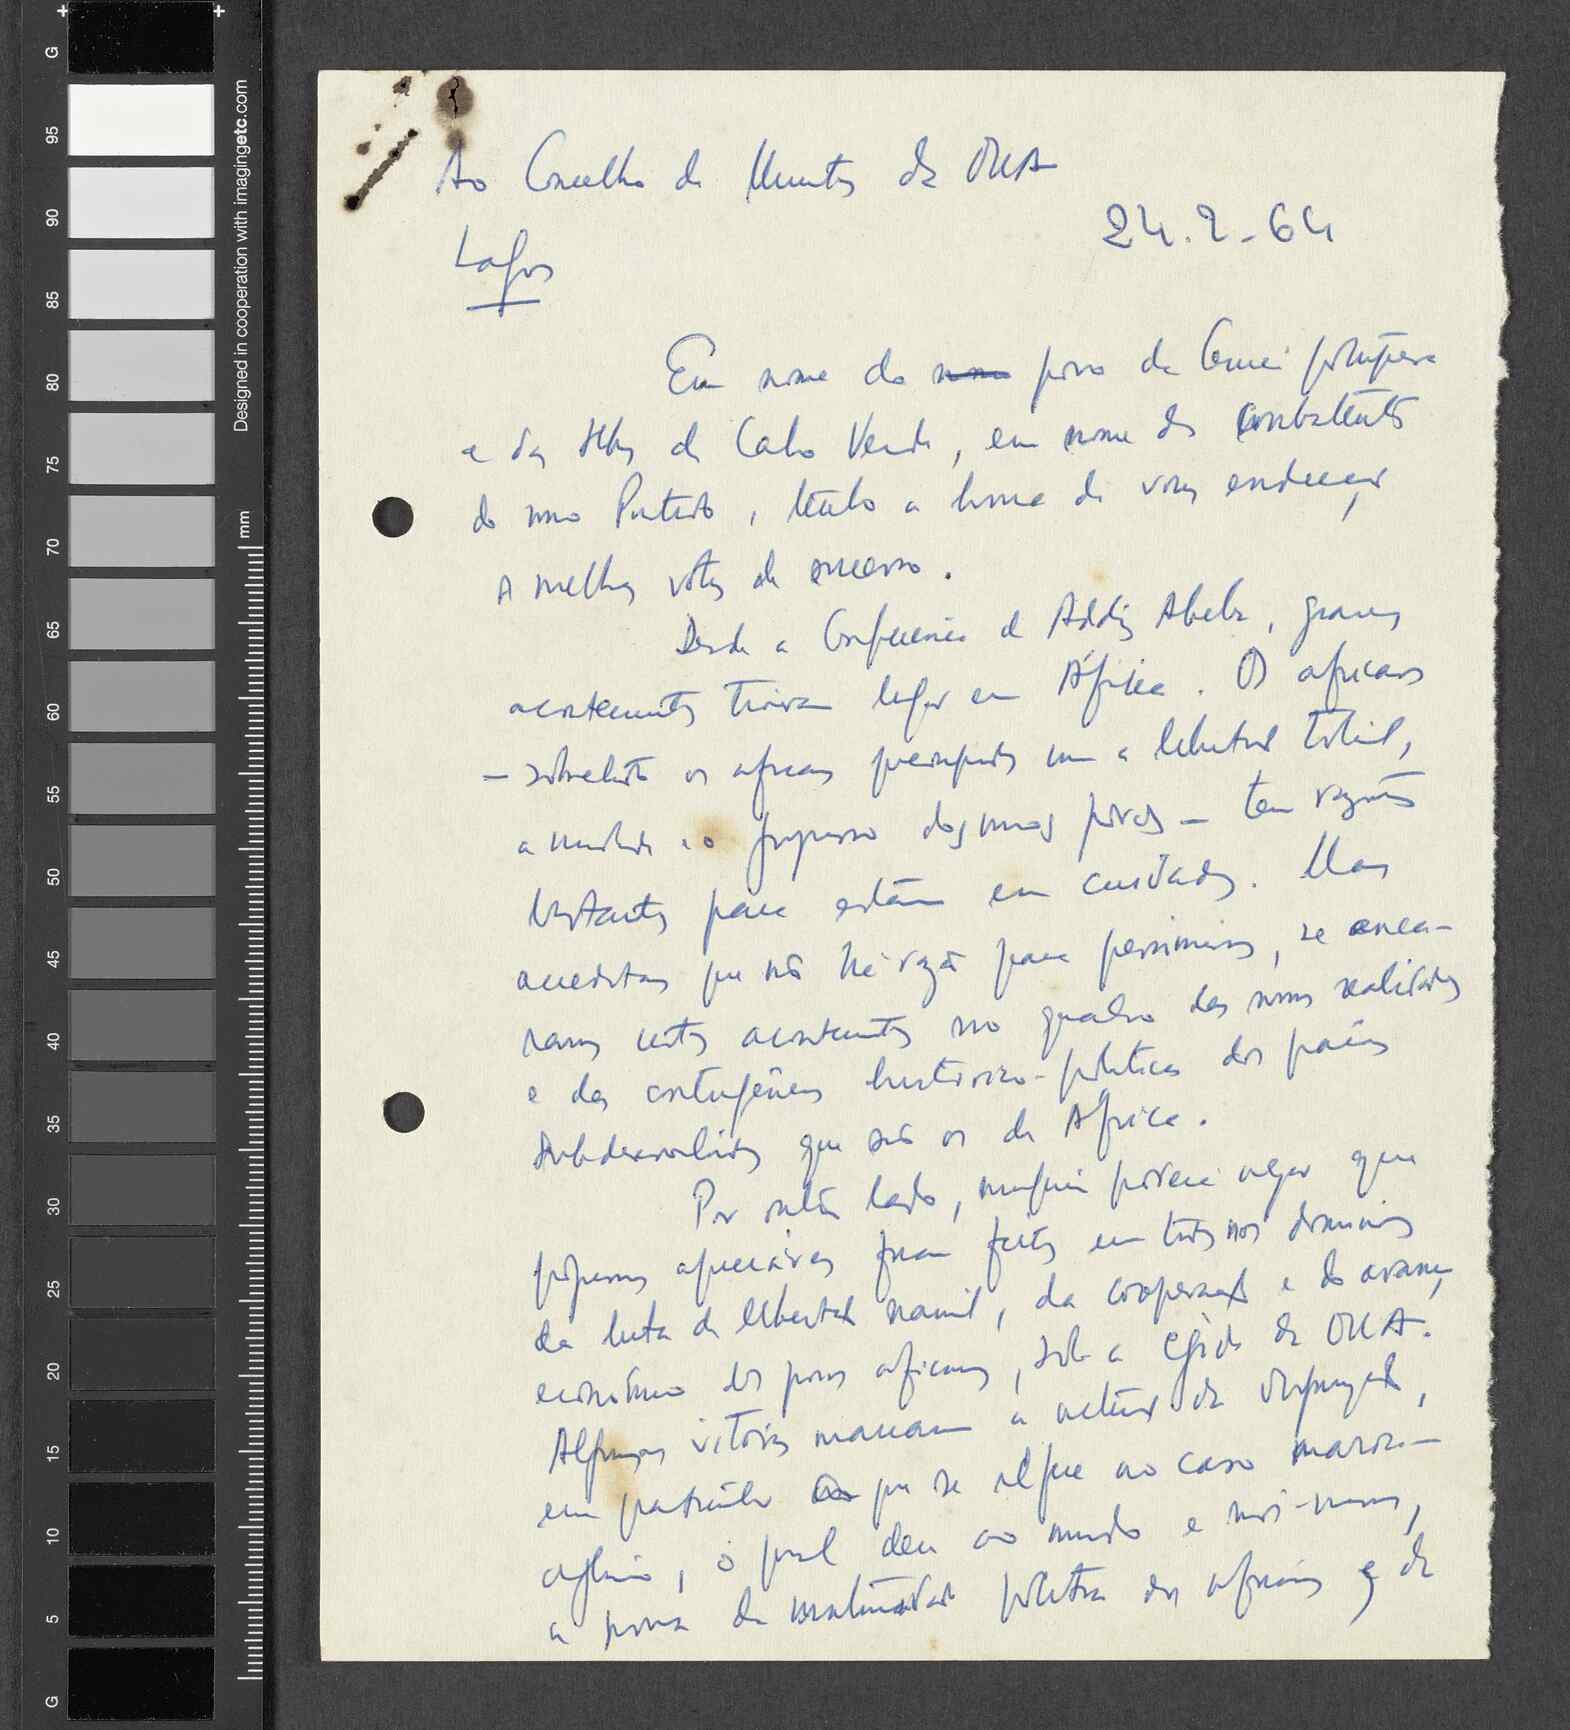 Ao Conselho de Ministros da OUA
24.2.64
Lagos
Em nome do nosso povo da Guiné portuguesa
e das Ilhas de Cabo Verde, em nome dos combatentes
do nosso Partido, tenho a honra de vos endereçar
os melhores votos de sucesso.
Desde a Conferência de Addis Abeba, graves
acontecimentos tiveram lugar em África. Os africanos
— sobretudo os africanos preocupados com a libertação total,
a unidade e o progresso dos nossos povos — têm razões
bastantes para estarem em cuidados. Mas
acreditamos que não há razão para pessimismos, se enca-
ramos certos acontecimentos no quadro das nossas realidades
e das contingências histórico-políticas dos países
subdesenvolvidos que são os de África.
Por outro lado, ninguém poderá negar que
progressos apreciáveis foram feitos em todos os domínios
da luta de libertação nacional, da cooperação e do avanço
económico dos povos africanos, sob a égide da OUA.
Algumas vitórias marcaram a actividade da organização,
em particular no que se refere ao caso marroco-
argelino, o qual deu ao mundo e a nós-mesmos,
a prova da maturidade política dos africanos e da